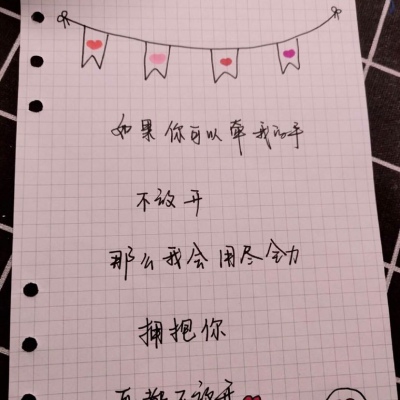 如果你可以牵我的手
不放开
那么我会用尽全力
拥抱你
再都不放开